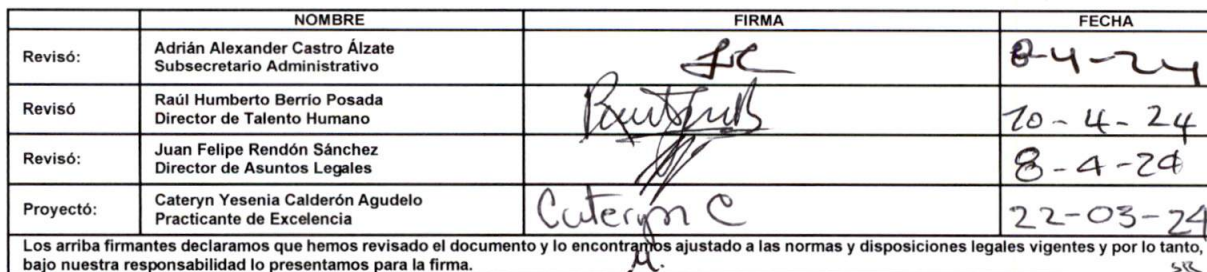 NOMBRE FIRMA FECHA
Revisó: Adrián Alexander Castro Álzate
Subsecretario Administrativo
8-4-24
Revisó Raúl Humberto Berrío Posada
Director de Talento Humano
10-4-24
Revisó: Juan Felipe Rendón Sánchez
Director de Asuntos Legales
8-4-24
Proyectó: Cateryn Yesenia Calderón Agudelo
Practicante de Excelencia
Cateryn C
22-03-24
Los arriba firmantes declaramos que hemos revisado el documento y lo encontramos ajustado a las normas y disposiciones legales vigentes y por lo tanto,
bajo nuestra responsabilidad lo presentamos para la firma.